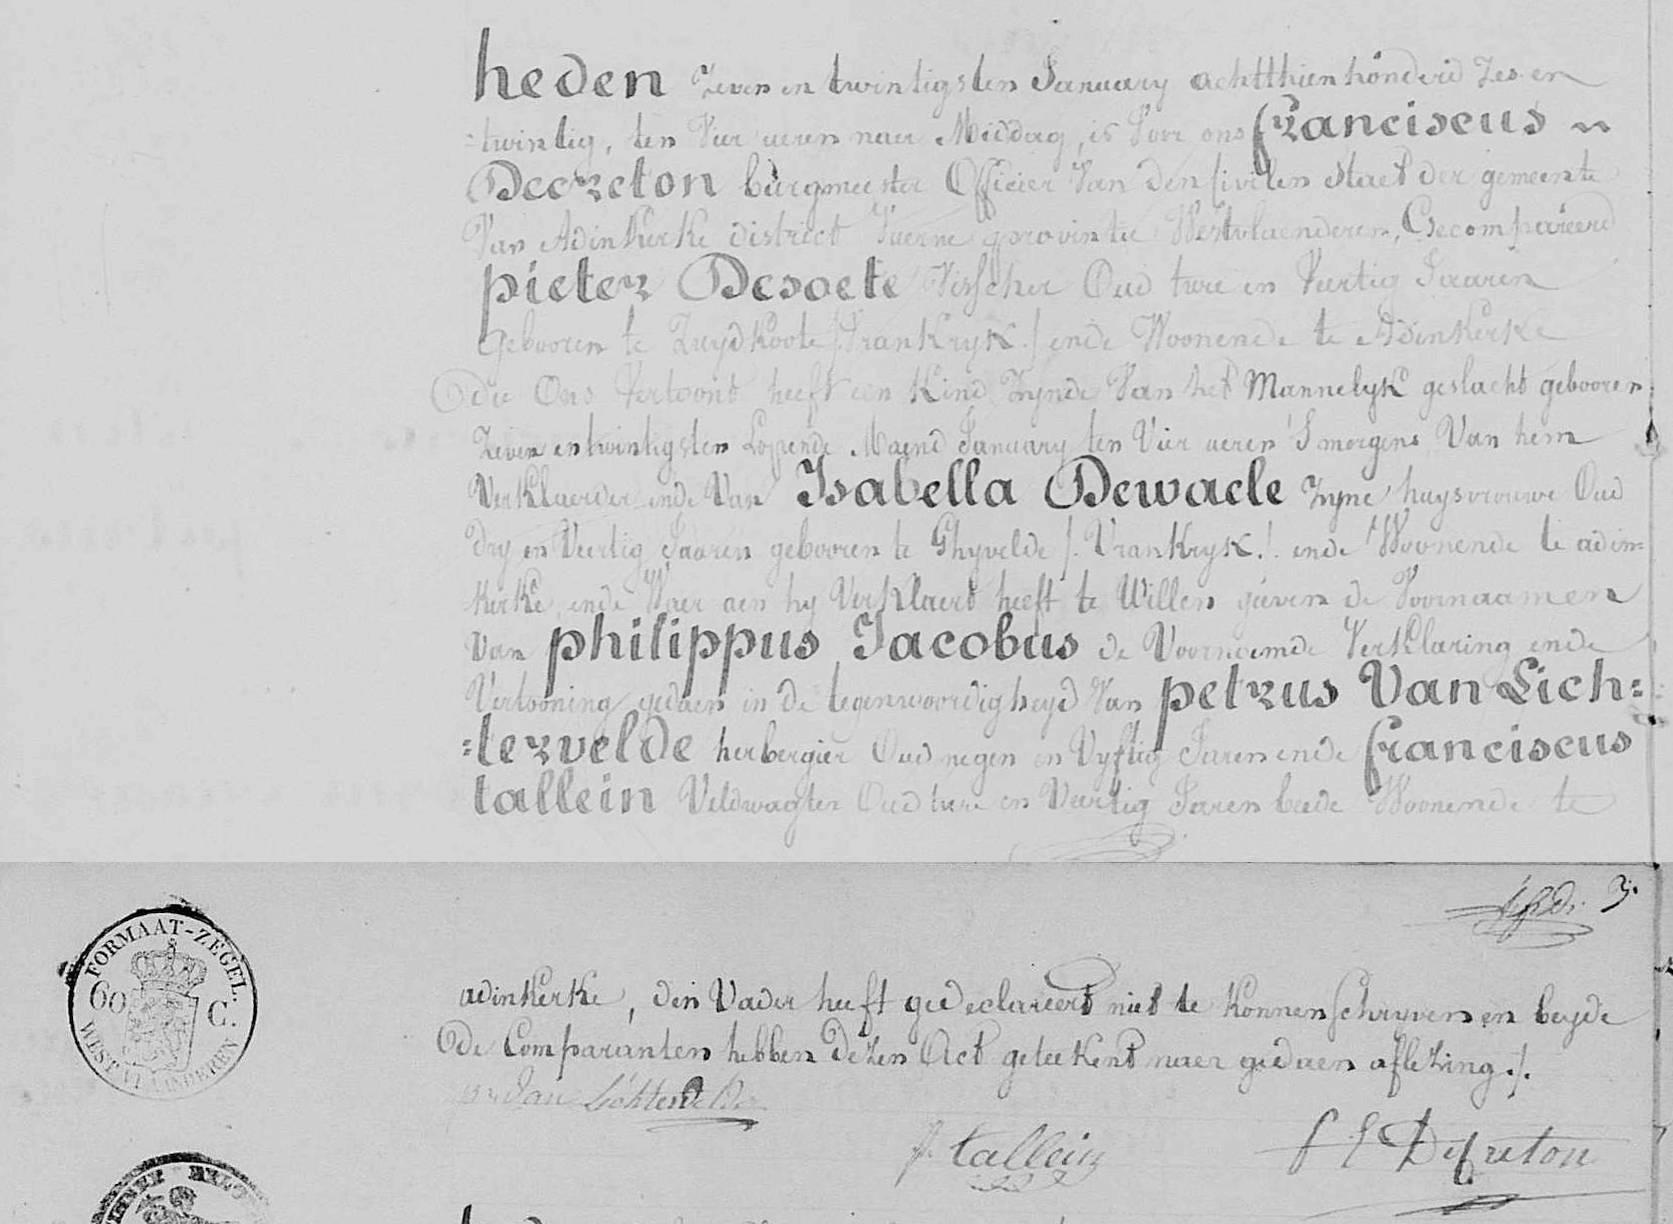 heden zeven en twintigsten January achtthien honderd zes en
=twintig, ten Vier ueren naer Middag, is Voor ons franciscus
Decreton burgmeester Officier Van den Civilen Staet der gemeente
Van Adinkerke district Vuerne provintie Westvlaenderen, Gecompareerd
pieter Desoete Visscher Oud twee en Veertig Jaaren
Gebooren te Zuydkoote /Vrankryk./ ende Woonende te Adinkerke
die Ons Vertoont heeft een Kind Zynde Van het Mannelyk geslacht gebooren
Zeven en twintigsten Lopende Maend January ten Vier ueren 'Smorgens Van hem
Verklaerder ende Van Isabella Dewaele Zyne huysvrouwe Oud
dry en Veertig Jaaren gebooren te Ghyvelde /. Vrankryk ./. ende Woonende te adin-
kerke, ende Waer aen hy Verklaert heeft te Willen geeven de Voornaamen
Van philippus Jacobus de Voornoemde Verklaring ende
Vertooning gedaen in de tegenwoordigheyd Van petrus Van Lich=
=tervelde herbergier Oud negen en Vyftig Jaren ende franciscus
tallein Veldwagter Oud twee en Veertig Jaren beede Woonende te
3.
FORMAAT-ZEGEL.
60 C.
WEST VLAANDEREN
adinkerke, den Vader heeft gedeclareert niet te konnen Schryven en beyde
de Comparanten hebben dezen Act geteekent naer gedaen aflezing ./.
Van Lichtervelde
f. tallein
f Decreton